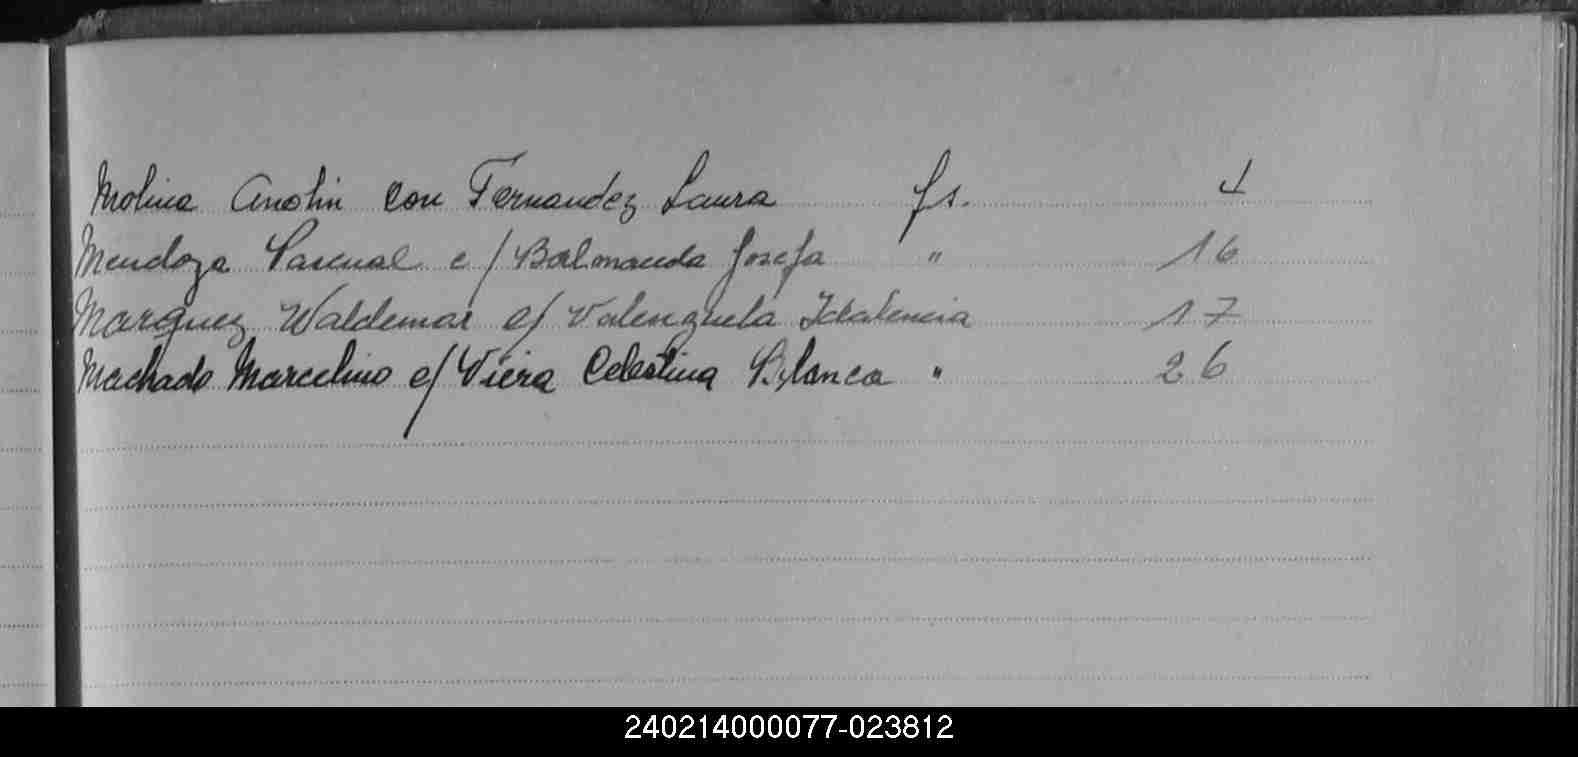 Molina Anolin con Fernandez Laura fs. 4
Mendoza Pascual c/ Balmaceda Josefa " 16
Marquez Waldemar c/ Valenzuela 17
Machado Marcelino c/ Viera Celestina Blanca " 26
240214000077-023812